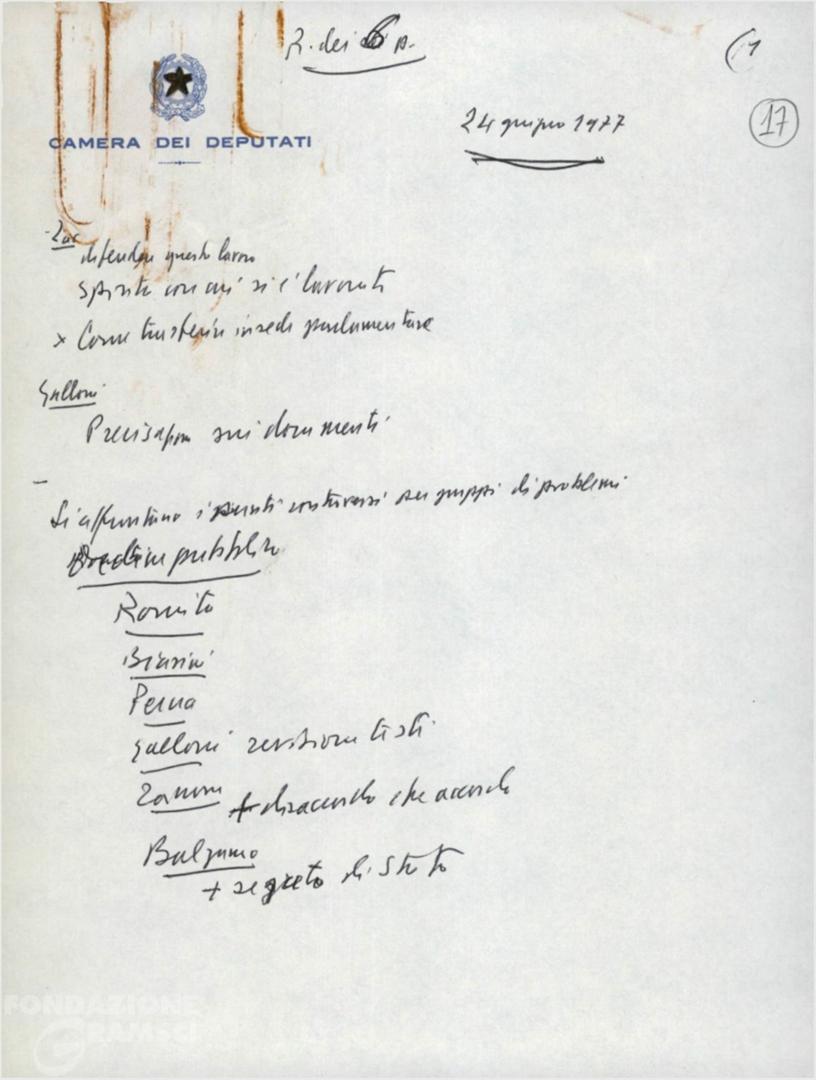 R. dei 6 p.
(1
CAMERA DEI DEPUTATI
24 giugno 1977
17
- Zac
difendere questo lavoro
Spirito con cui si è lavorato
x Come trasferire in sede parlamentare
Galloni
Precisazioni sui documenti
-
Si affrontano i punti controversi per gruppi di problemi
Ordine pubblico
Romita
Biasini
Perna
Galloni revisione testi
Zanone + disaccordo che accordo
Balzamo
+ segreto di Stato
FONDAZIONE
GRAMSCI